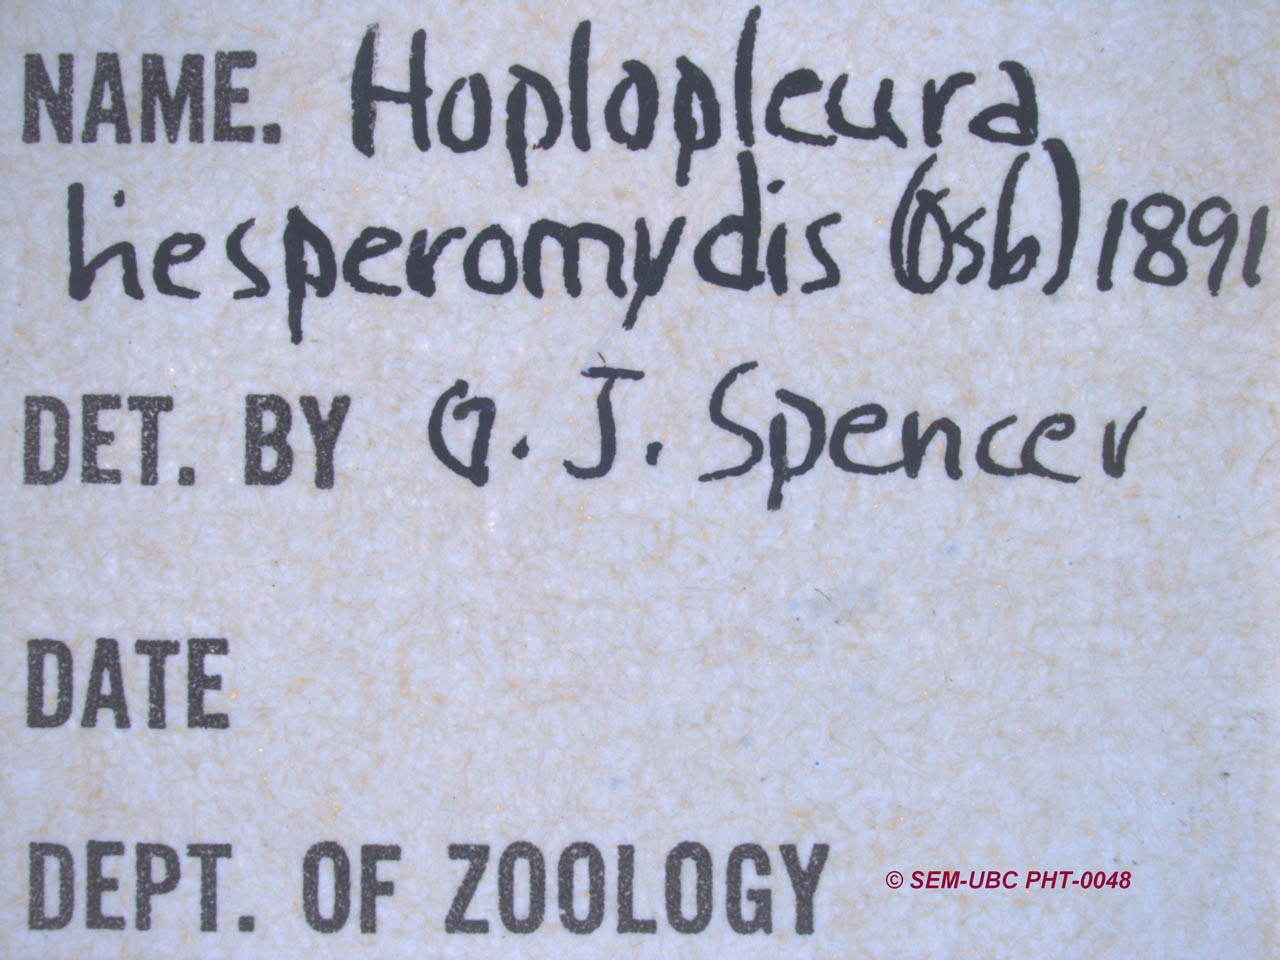 NAME. Hoplopleura
hesperomydis (Osb) 1891
DET. BY G. J. Spencer
DATE
DEPT. OF ZOOLOGY
© SEM-UBC PHT-0048